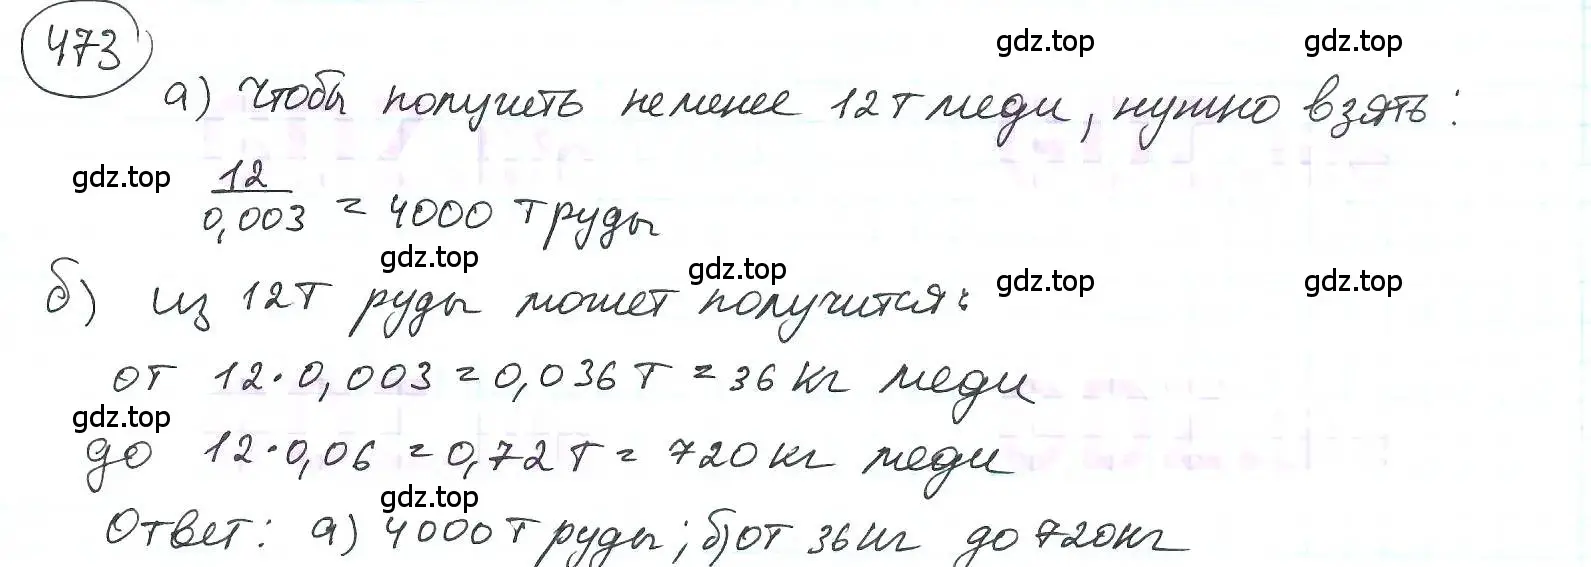 473
gdz.top gdz.top
а) Чтобы получить не менее 12т меди, нужно взять:
gdz.top 12/0,003 = 4000 т руды
gdz.top gdz.top gdz.top gdz.top
б) из 12т руды может получится:
от 12·0,003=0,036 т = 36 кг меди
gdz.top
до 12·0,06=0,72 т = 720 кг меди
gdz.top
Ответ: а) 4000 т руды; б) от 36 кг до 720кг